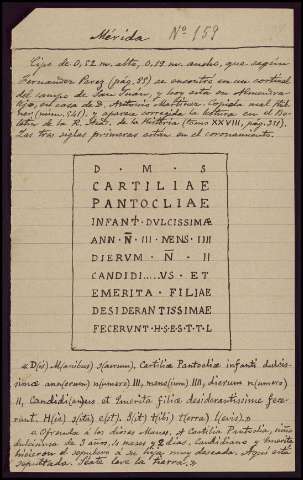 Mérida Nº 159
Cipo de 0,52 m. alto, 0,19 m. ancho, que según
Fernandez Perez (pág. 85) se encontró en un cortinal
del campo de San Juan, y hoy está en Almendra
lejo, en casa de D. Antonio Martinez. Copiada mal Hüb
ner (núm. 541), y aparece corregida la lectura en el Bo-
letín de la R. Acad. de la Historia (tomo XXVIII, pág. 351).
Las tres siglas primeras están en el coronamiento.
D · M · S
CARTILIAE
PANTOCLIAE
INFANT · DVLCISSIMÆ
ANN · N̄ · III · MENS · IIII
DIERVM · N̄ · II
CANDIDI....VS · ET
EMERITA · FILIAE
DESIDERANTISSIMAE
FECERVNT · H·S·E·S·T·T·L
D(is) M(anibus) s(acrum), Cartiliæ Pantocliæ infanti dulcis-
simæ ann(orum) n(umero) III, mens(ium) IIII, dierum n(umero)
II, Candidi(an)us et Emerita filiæ desiderantissimæ fece-
runt. H(ic) s(ita) e(st). S(it) t(ibi) t(erra) l(evis).
Ofrenda á los dioses Manes. A Cartilia Pantoclia, niña
dulcísima de 3 años, 4 meses y 2 días. Candidiano y Emerita
hicieron el sepulcro á su hija muy deseada. Aquí está
sepultada. Séate leve la tierra.